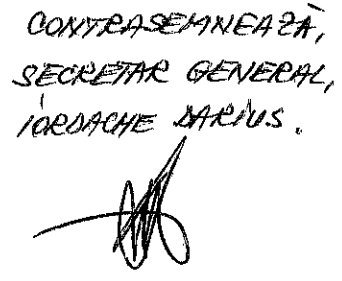 CONTRASEMNEAZĂ,
SECRETAR GENERAL,
IORDACHE DARIUS.